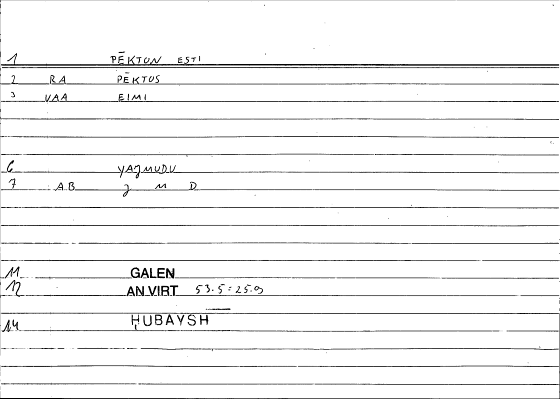 1 PĒKTON ESTI
2 RA PĒKTOS
3 VAA EIMI
6 YAJMUDU
7 AB J M D
11 GALEN
12 AN VIRT 53.5:25.9
14 ḤUBAYSH